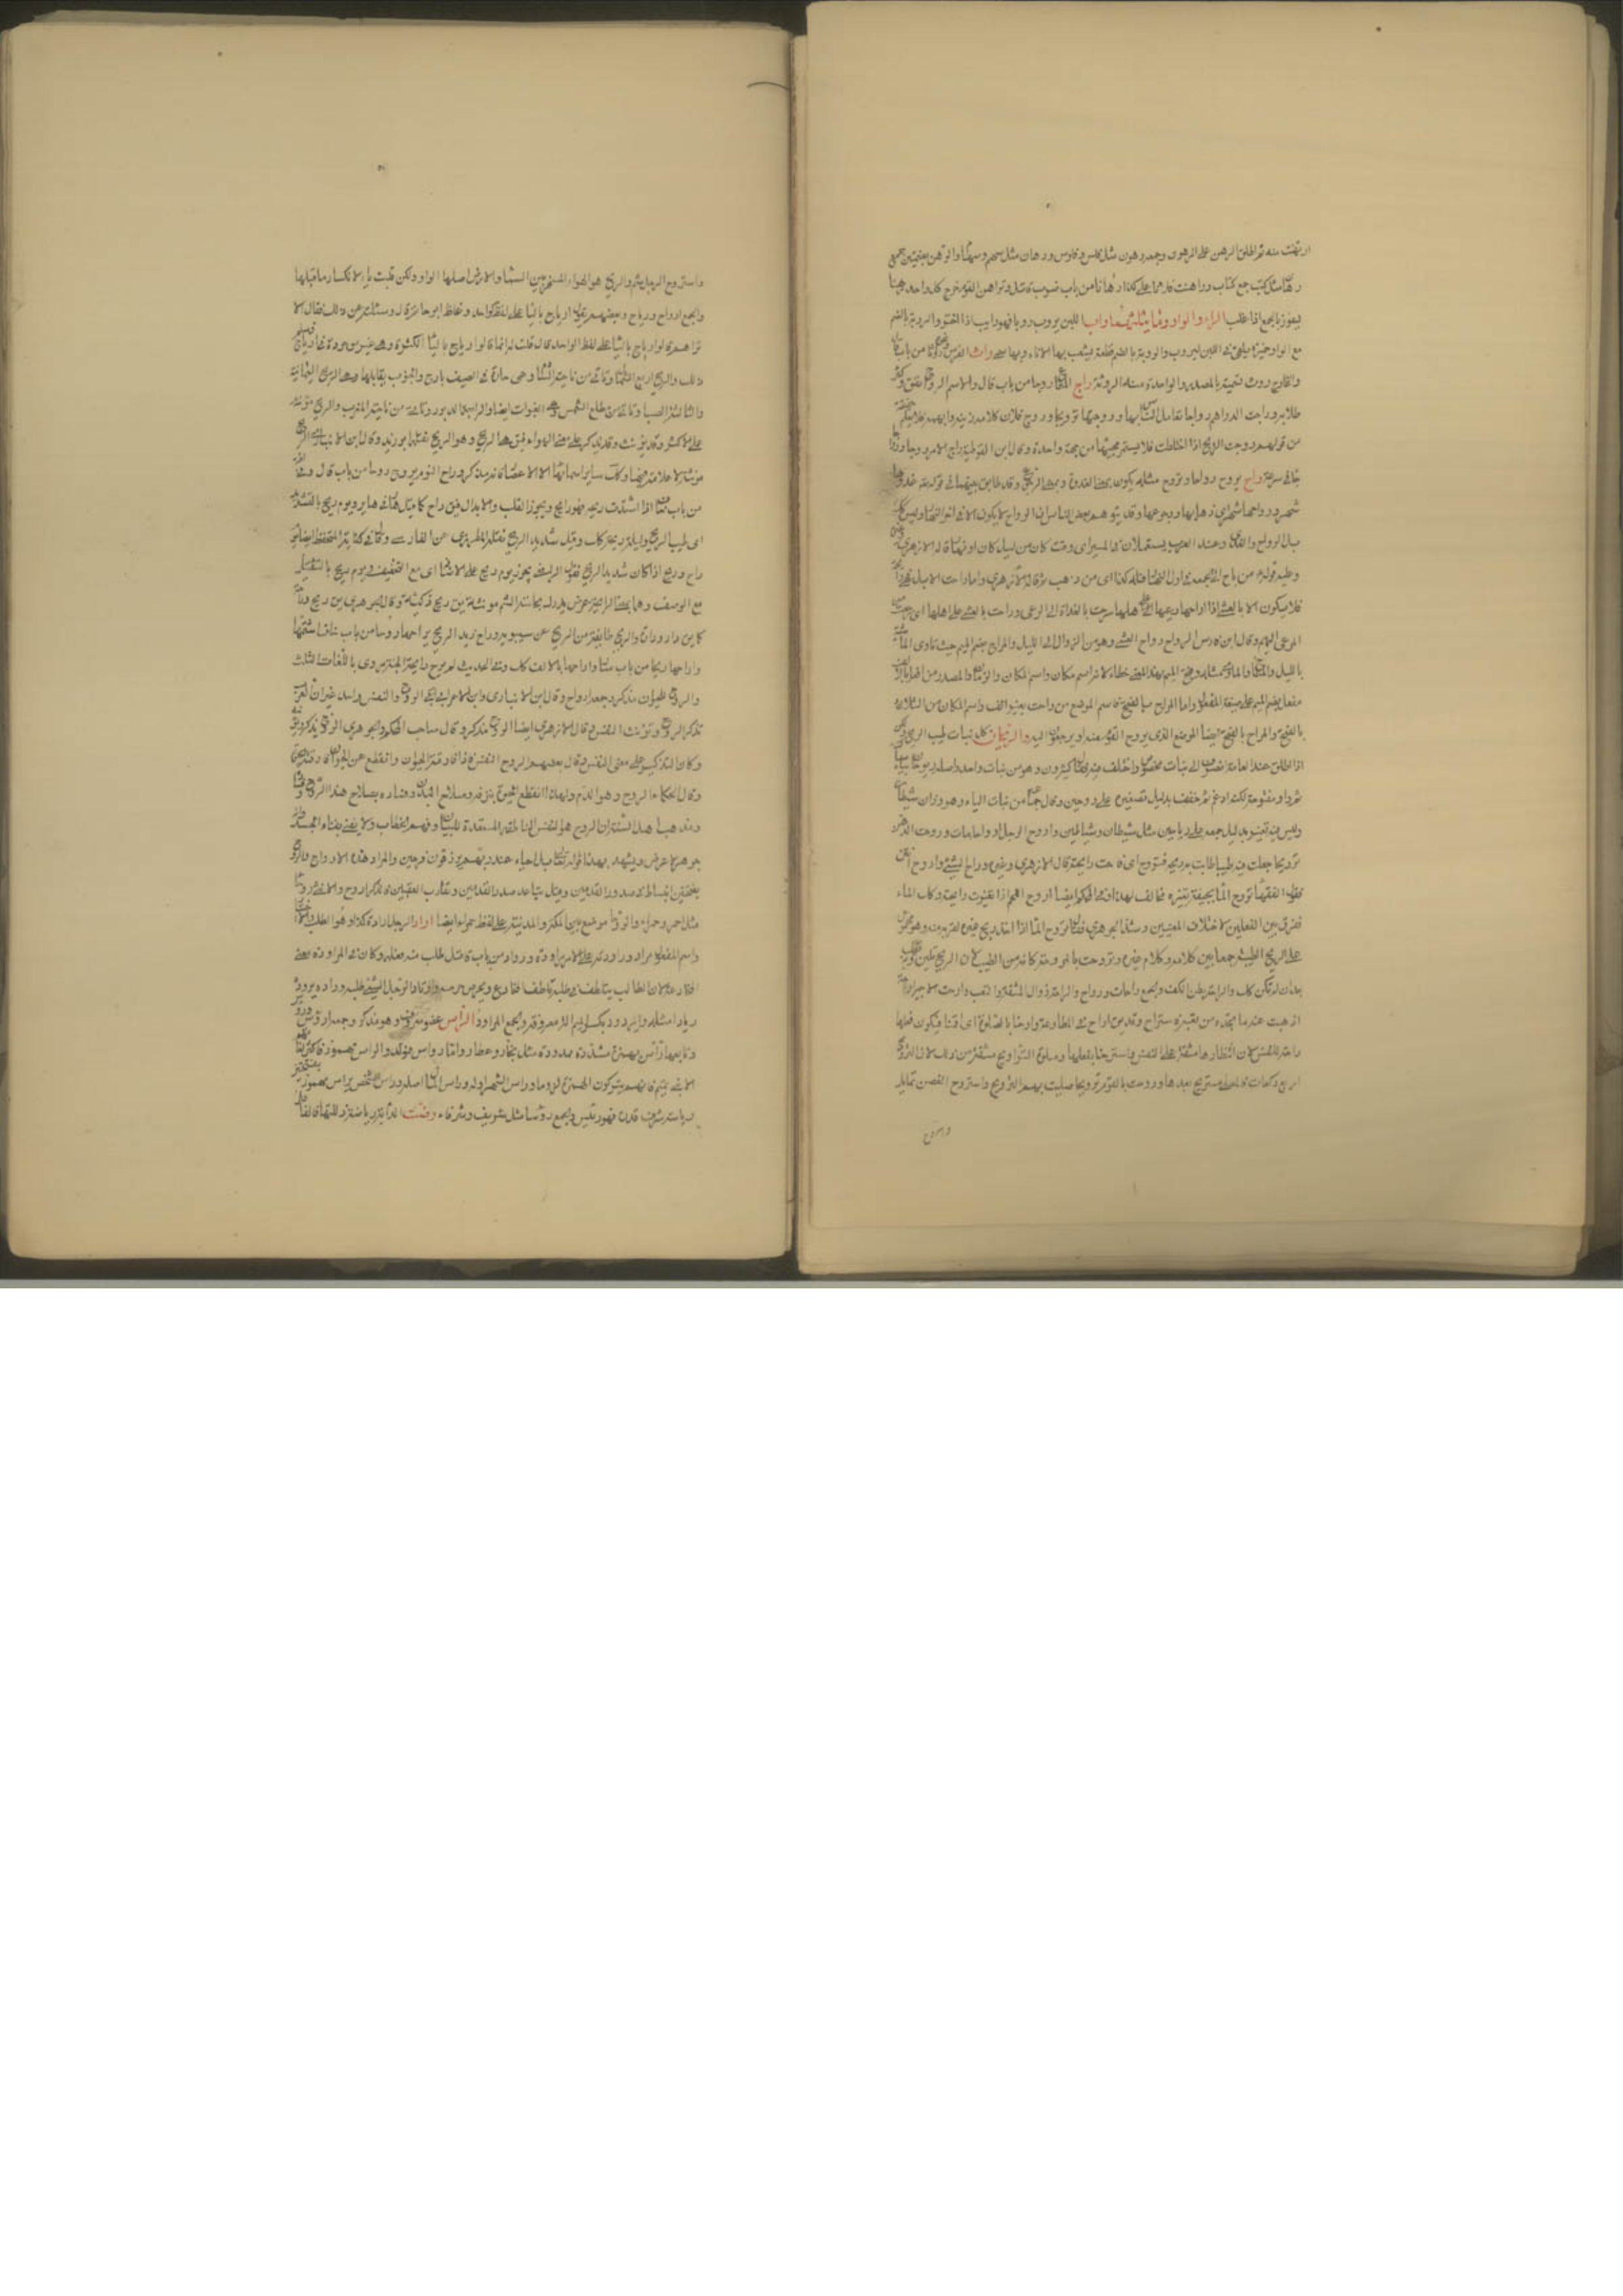 ارتهنت منه ثم اطلق الرهن على المرهون وجمعه رهون مثل فلس وفلوس ورهان مثل سهم وسهام والرهن بضمتين جمع
رهان مثل كتب جمع كتاب وراهنت فلانا على كذا رهانا من باب قاتل وتراهن القوم اخرج كل واحد رهنا
ليفوز بالجمع اذا غلب الراء والواو وما يثلثهما راب اللبن يروب روبا فهو رايب اذا خثر والروبة بالضم
مع الواو خميرة تلقى في اللبن ليروب والروبة بالضم قطعة يشعب بها الاناء وبها سمي راث الفرس روثا من باب قال
والخارج روث تسمية بالمصدر والواحدة منه الروثة راج المتاع روجا من باب قال والاسم الرواج نفق وكثر
طلابه وراجت الدراهم رواجا تعامل الناس بها وروجتها ترويجا وروج فلان كلامه زينه وابهمه فلا يعلم حقيقته
من قولهم روجت الريح اذا اختلطت فلا يستمر مجيئها من جهة واحدة وقال ابن القوطية راج الامر روجا ورواجا
جاء في سرعة راح يروح رواحا وتروح مثله يكون بمعنى الغدو وبمعنى الرجوع وقد طابق بينهما في قوله تعالى غدوها
شهر ورواحها شهر اي ذهابها ورجوعها وقد يتوهم بعض الناس ان الرواح لا يكون الا في اخر النهار وليس كذلك
بل الرواح والغدو عند العرب يستعملان في المسير اي وقت كان من ليل كان او نهار قاله الازهري وغيره
وعليه قوله من راح الى الجمعة في اول النهار فله كذا اي من ذهب ثم قال الازهري واما راحت الابل فهي رائحة
فلا يكون الا بالعشي اذا اراحها راعيها على اهلها سرحت بالغداة الى الرعي وراحت بالعشي على اهلها اي رجعت من
المرعى اليهم وقال ابن فارس الرواح رواح العشي وهو من الزوال الى الليل والمراح بضم الميم حيث تاوى الماشية
بالليل والمناخ والماوى مثله وفتح الميم بهذا المعنى خطا لانه اسم مكان واسم المكان والزمان والمصدر من افعل بالالف
مفعل بضم الميم على صيغة المفعول واما المراح بالفتح فاسم الموضع من راحت بغير الف واسم المكان من الثلاثي
بالفتح والمراح بالفتح ايضا الموضع الذي يروح القوم منه او يرجعون اليه والريحان كل نبات طيب الريح ولكن
اذا اطلق عند العامة انصرف الى نبات مخصوص واختلف فيه فقال كثيرون هو من بنات واحد واصله ريوحان بياء
ثم واو مفتوحة لكنه ادغم ثم خفف بدليل تصغيره على رويحين وقال جماعة من بنات الياء وهو وزان شيطان
وليس فيه تغيير بدليل جمعه على رياحين مثل شيطان وشياطين واروح الرجل راح اهات وروحت الدهن
ترويحا جعلت فيه طيبا طابت به ريحه فتروح اي فاحت رايحته قال الازهري وغيره وراح الشيء واروح انتن
فقول الفقهاء تروح الماء بجيفة بقربه مخالف لهذا وفي المحكم ايضا اروح اللحم اذا تغيرت رايحته وكذلك الماء
ففرق بين الفعلين لاختلاف المعنيين وشذ الجوهري فقال تروح الماء اذا اخذ ريح غيره لقربه منه وهو محمول
على الريح الطيبة جمعا بين كلامه وكلام غيره وتروحت بالمروحة كانه من الطيب لان الريح تلين به وتطيب
بعد ان لم تكن كذلك والراحة بطن الكف والجمع راحات وراح والراحة زوال المشقة والتعب وارحت الاجير اراحة
اذهبت عنه ما يجده من تعبه فاستراح وقد يقال اراح في المطاوعة وارحنا بالصلاة اي اقمها فيكون فعلها
راحة للنفس لان انتظارها مشقة على النفس واسترحنا بفعلها وصلاة التراويح مشتقة من ذلك لان الترويحة
اربع ركعات فالمصلي يستريح بعدها وروحت بالقوم ترويحا صليت بهم التراويح واستروح الغصن تمايل
واستروح
واستروح الرجل يثم والريح هو الهواء المسخر بين السماء والارض اصلها الواو ولكن قلبت ياء لانكسار ما قبلها
والجمع ارواح ورياح وبعضهم يقول ارياح بالياء على لفظ الواحد وغلظ ابو حاتم قال وسئلته عن ذلك فقال الا
تراهم قالوا رياح بالياء على لفظ الواحد قال قلت له انما قالوا رياح بالياء للكسرة وهي غير موجودة في ارياح فسلم
ذلك والريح اربع الشمال وتاتي من ناحية الشام وهي حارة في الصيف بارح والجنوب تقابلها وهي الريح اليمانية
والثالثة الصبا وتاتي من مطلع الشمس وهي القبول ايضا والرابعة الدبور وتاتي من ناحية المغرب والريح مؤنثة
على الاكثر وقد يؤنث وقد يذكر على معنى الهواء فيقال هو الريح وهو الريح نقله ابو زيد وقال ابن الانباري الريح
مؤنثة لا علامة فيها وكذلك ساير اسمائها الا الاعصار فانه مذكر وراح اليوم يروح روحا من باب قال وفي لغة
من باب خاف اذا اشتدت ريحه فهو رايح ويجوز القلب والابدال فيقال راح كما قيل هار في هاير ويوم ريح بالتشديد
اي طيب الريح وليلة ريحة كذلك وقيل شديد الريح نقله المطرزي عن الفارسي وقال في كفاية المتحفظ ايضا يوم
راح وريح اذا كان شديد الريح فقول الرافعي يجوز يوم ريح على الاضافة اي مع التخفيف ويوم ريح بالتثقيل
مع الوصف وهما بمعنى الرايحة عرض يدرك بحاسة الشم مؤنثة يقال ريح ذكية وقال الجوهري يقال ريح وريحة
كما يقال دار ودارة والريح طايفة من الريح عن سيبويه وراح زيد الريح يراحها روحا من باب خاف اشتمها
واراحها ريحا من باب سار واراحها بالالف كذلك وفي الحديث لم يرح رايحة الجنة مروى باللغات الثلث
والروح للحيوان مذكر وجمعه ارواح وقال ابن الانباري وابن الاعرابي الروح والنفس واحد غير ان العرب
تذكر الروح وتؤنث النفس وقال الازهري ايضا الروح مذكر وقال صاحب المحكم والجوهري الروح يذكر ويؤنث
وكان التذكير على معنى النفس وقال بعضهم الروح النفس فاذا فارقت الحيوان وانقطع عن الحياة
وقال الحكماء الروح هو الدم ولهذا انقطع الحيوة بنزفه وصلاح البدن وفساده بصلاح هذا الروح وفساده
ومذهب اهل السنة ان الروح هو النفس الناطقة المستعدة للبيان وفهم الخطاب ولا يفنى بفناء الجسد وانه
جوهر لا عرض ويشهد بهذا قوله تعالى بل احياء عند ربهم يرزقون فرحين والمراد هذه الارواح والروح
بفتحتين انبساط في صدور القدمين وقيل تباعد صدر القدمين وتقارب العقبين فالذكر اروح والانثى روحاء
مثل احمر وحمراء والروحاء موضع بين مكة والمدينة على لفظ حمراء ايضا اراد الرجل ارادة كذا وهو الطلب والاختيار
واسم المفعول مراد وراودته على الامر مراودة ورواد من باب قاتل طلب منه فعله وكان في المراودة معنى
المخادعة لان الطالب يتلطف في طلبه تلطف المخادع ويحرص حرصه وارتاد الرجل الشيء طلبه وراده يروده
ريادا مثله والمرود بكسر الميم الة معروفة والجمع المراود الراس عضو معروف وهو مذكر وجمعه ارؤس ورؤس
وبايعها رآس بهمزة مشددة ممدودة مثل نجار وعطار واما رواس فمولد والراس مهموز في اكثر لغاتهم
الا بني تميم فانهم يتركون الهمز لزوما وراس الشهر اوله وراس المال اصله وراس الشخص يراس مهموز بفتحتين
رياسة شرف قدره فهو رئيس والجمع رؤسا مثل شريف وشرفاء رضت الدابة رياضة ذللتها فالفاعل